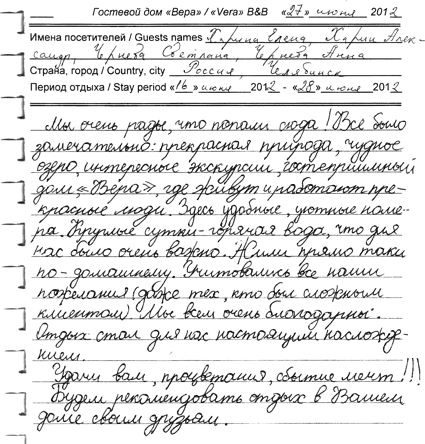 Гостевой дом «Вера» / «Vera» B&B «27» июня 2012
Имена посетителей / Guests names Елена, Карин Алек-
сандр, Чернета Светлана, Чернета Анна
Страна, город / Country, city Россия, Челябинск
Период отдыха / Stay period «16» июня 2012 - «28» июня 2012
Мы очень рады, что попали сюда! Всё было
замечательно: прекрасная природа, чудное
озеро, интересные экскурсии, гостеприимный
дом «Вера», где живут и работают пре-
красные люди. Здесь удобные, уютные номе-
ра. Круглые сутки - горячая вода, что для
нас было очень важно. Жили прямо таки
по-домашнему. Учитовались все наши
пожелания (даже тех, кто был сложным
клиентом). Мы всем очень благодарны.
Отдых стал для нас настоящим наслажде-
нием.
Удачи вам, процветания, сбытие мечт!!!
Будем рекомендовать отдых в Вашем
доме своим друзьям.